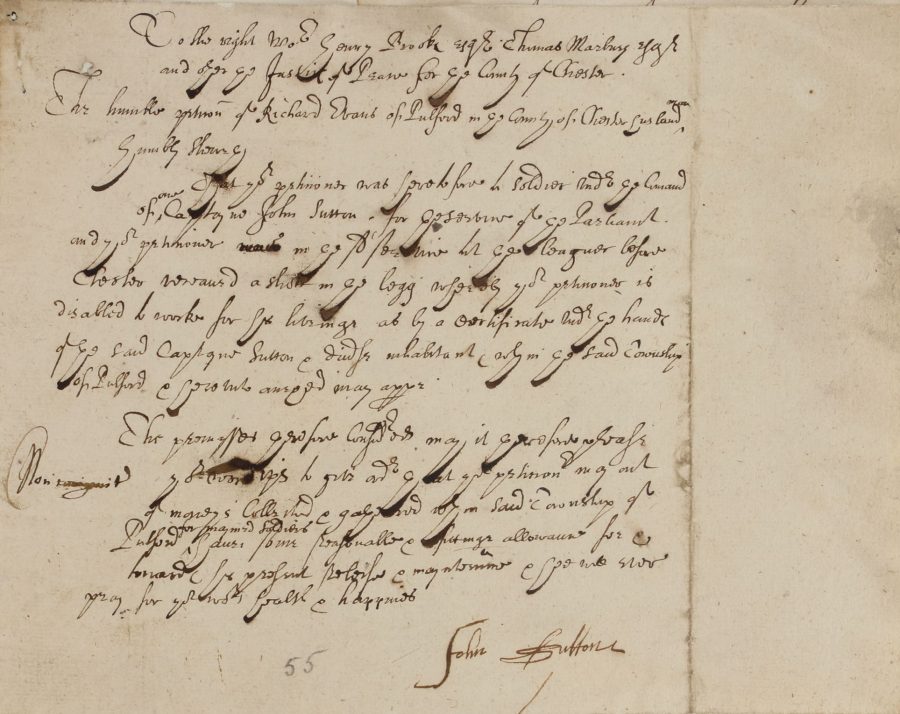 To the right Wor: Henry Brooke Esqr: Thomas Marbury Esqr
and other the Justices of Peace for the County of Chester.
The humble petition of Richard Evans of Pulford in the County of Chester husbandman
Humbly Sheweth
That yor petitioner was heretofore a soldier undr the Comand
of one Captayne John Sutton for the service of the Parliamt.
and yor petitioner in the sd service at the leaguer before
Chester receaved a shott in the legg whereby yor petitioner is
disabled to worke for his livinge as by a Certificate undr the hands
of the said Captayne Sutton & inhabitants wthin the said Towneship
of Pulford & hereunto annexed may appr:
The premisses therefore Considred may it therefore please
yor worships to give ordr that yor petitionr may out
of moneys Collected & gathered wthin said Towneship of
Pulford for maymed soldiers have some reasonable & fittinge allowance for &
towards his present releife & mayntennce & hee will ever
pray for yor worps health & happines
John Sutton
55